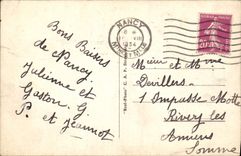 NANCY
1934
Bons Baisers
de Nancy
Julienne et
Gaston G
P. et Jeannot
Mr et Mme
Devillers
1 Impasse Motte
Rivery les
Amiens
Somme